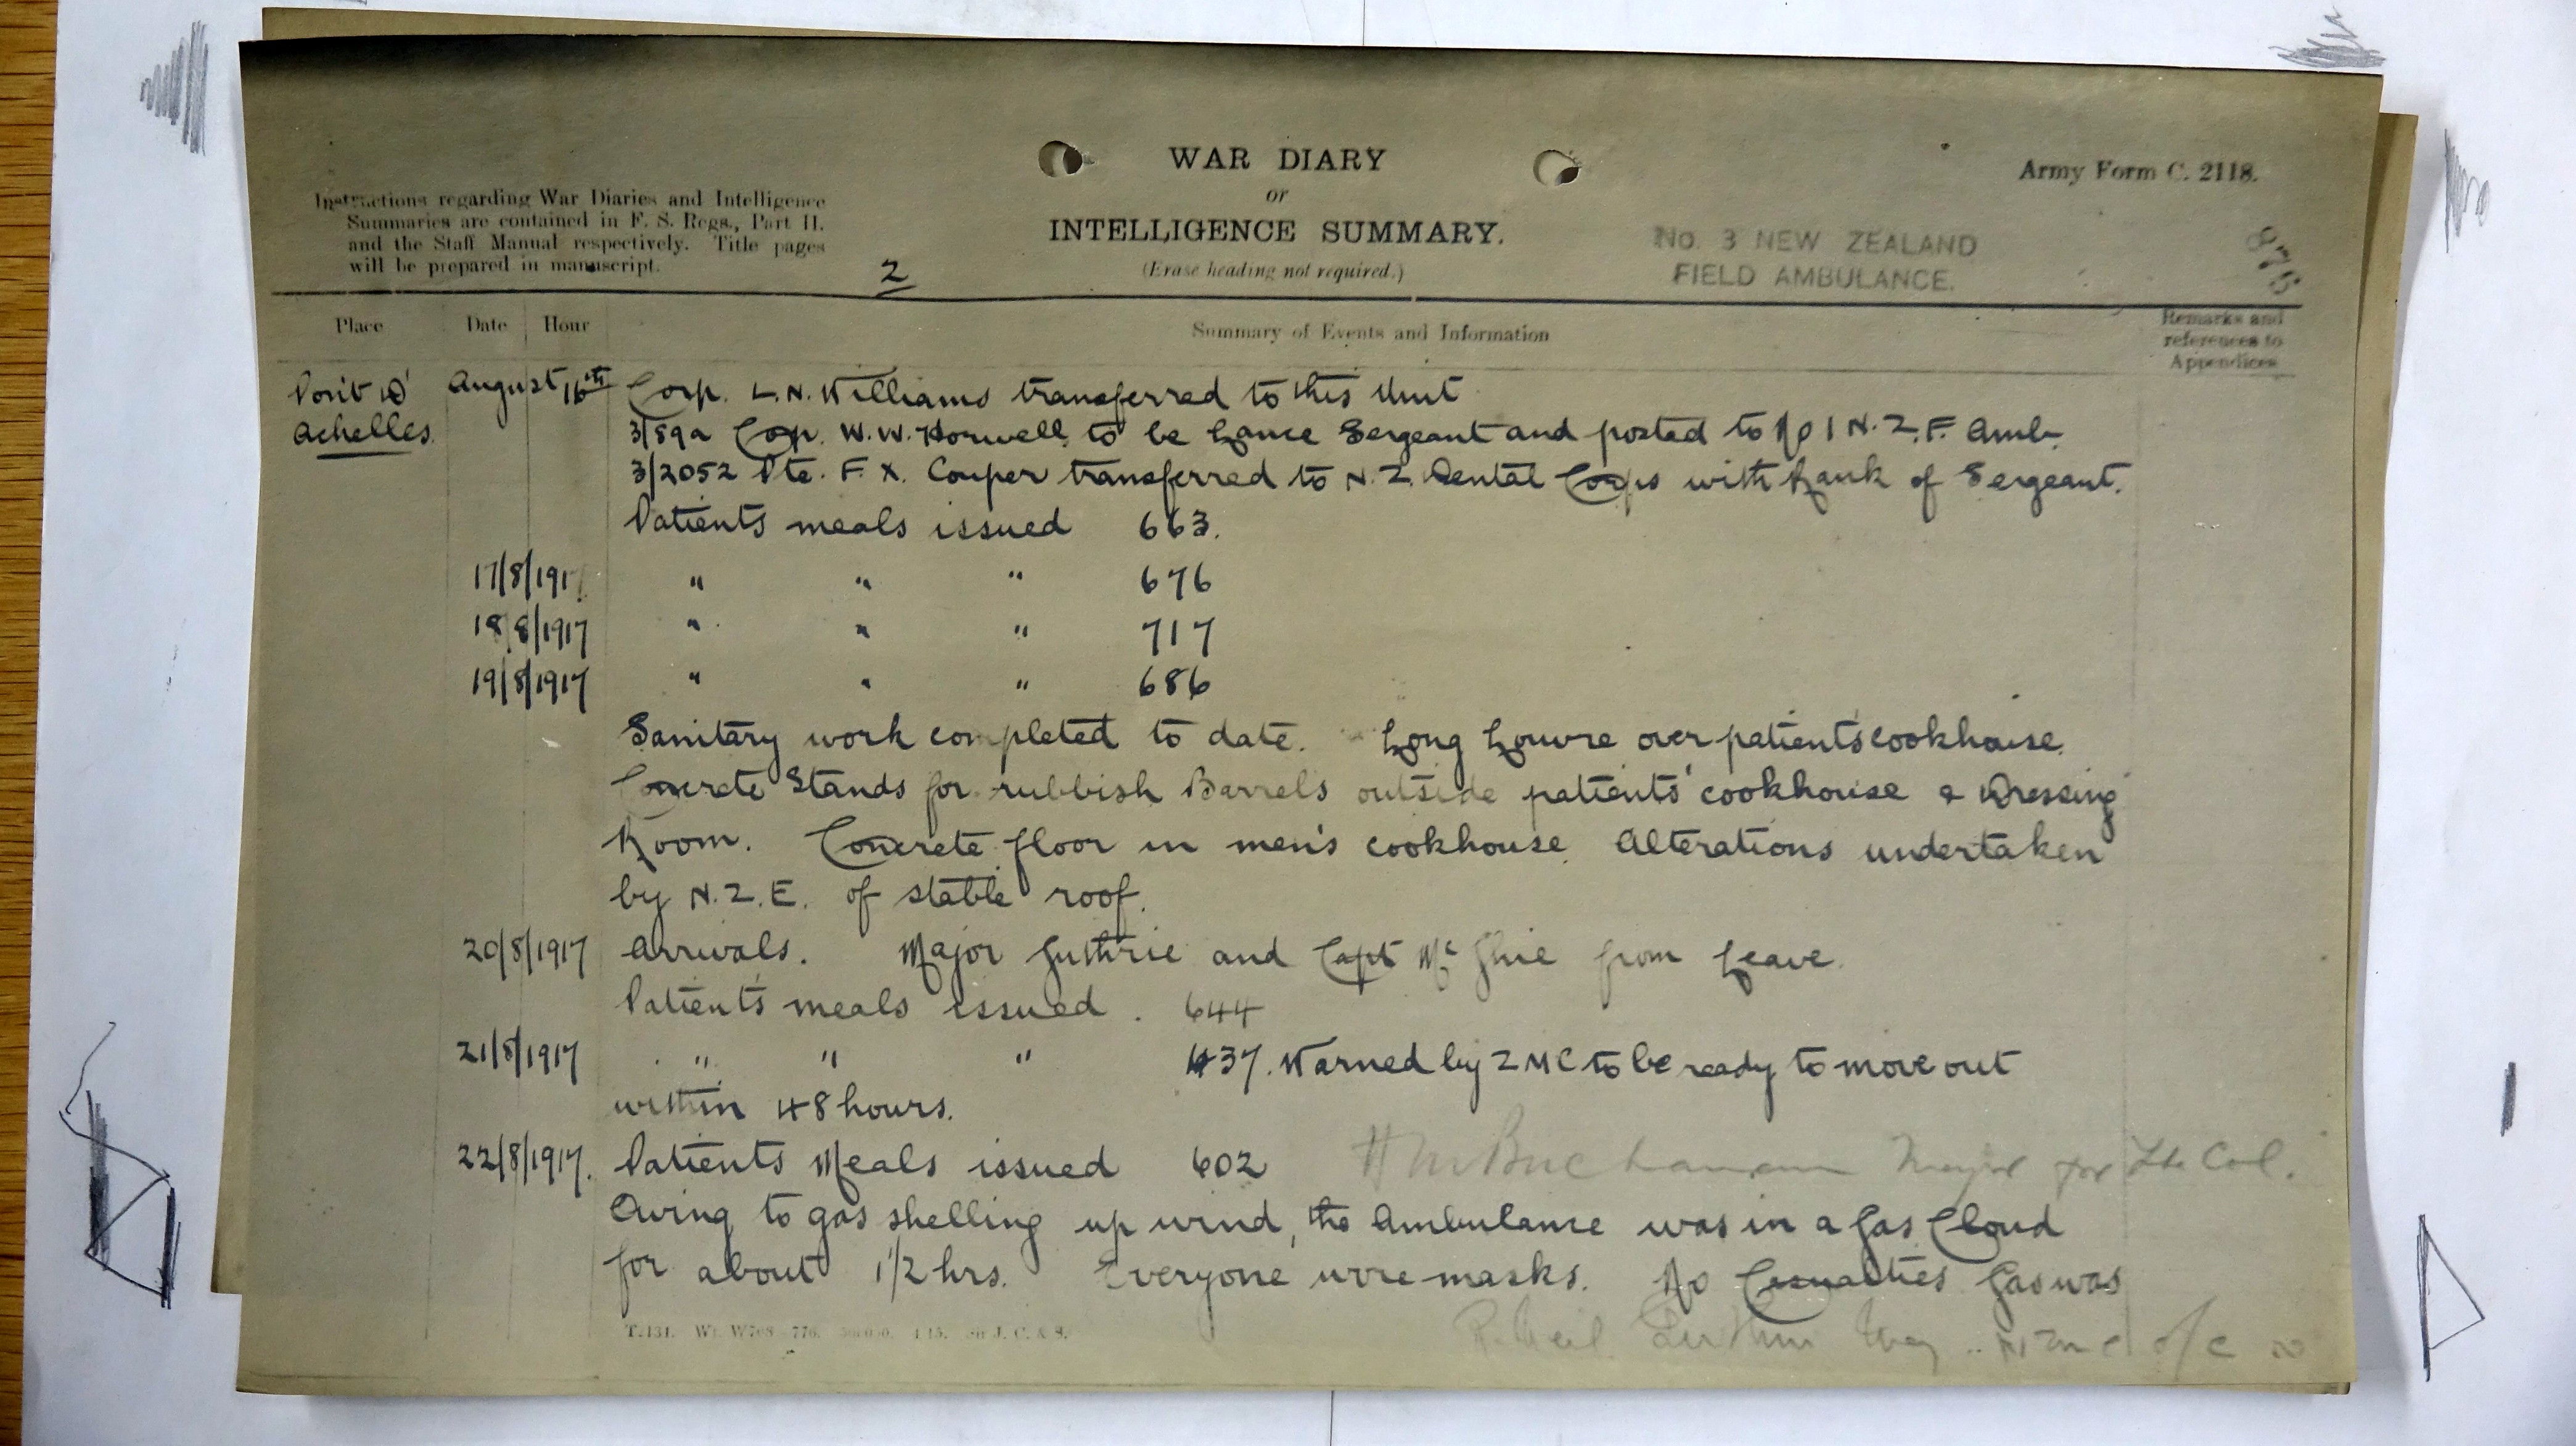 WAR DIARY
or
INTELLIGENCE SUMMARY.
(Erase heading not required.)
Army Form C. 2118.
Instructions regarding War Diaries and Intelligence
Summaries are contained in F. S. Regs., Part II.
and the Staff Manual respectively. Title pages
will be prepared in manuscript.
2
No. 3 NEW ZEALAND
FIELD AMBULANCE.
Place Date Hour Summary of Events and Information Remarks and
references to
Appendices
Pont D' August 16th Corp. L.N. Williams transferred to this Unit
Achelles. 3/89a Corp. W.W. Horwell to be Lance Sergeant and posted to No 1 N.Z.F. Amb.
3/2052 Pte. F. X. Couper transferred to N.Z. Dental Corps with Rank of Sergeant.
Patients meals issued 663.
17/8/1917 " " " 676
18/8/1917 " " " 717
19/8/1917 " " " 686
Sanitary work completed to date. Long Louvre over patients cookhouse.
Concrete Stands for rubbish Barrels outside patients' cookhouse & Dressing
Room. Concrete floor in men's cookhouse. Alterations undertaken
by N.Z.E. of stable roof.
20/8/1917 Arrivals. Major Guthrie and Capt Mc Ghie from Leave.
Patients meals issued. 644
21/8/1917 " " " 437. Warned by to be ready to move out
within 48 hours.
22/8/1917. Patients Meals issued 602 Buchanan Major for Lt Col.
Owing to gas shelling up wind, the Ambulance was in a Gas Cloud
for about 1/2 hrs. Everyone wore masks. No Casualties Gas was